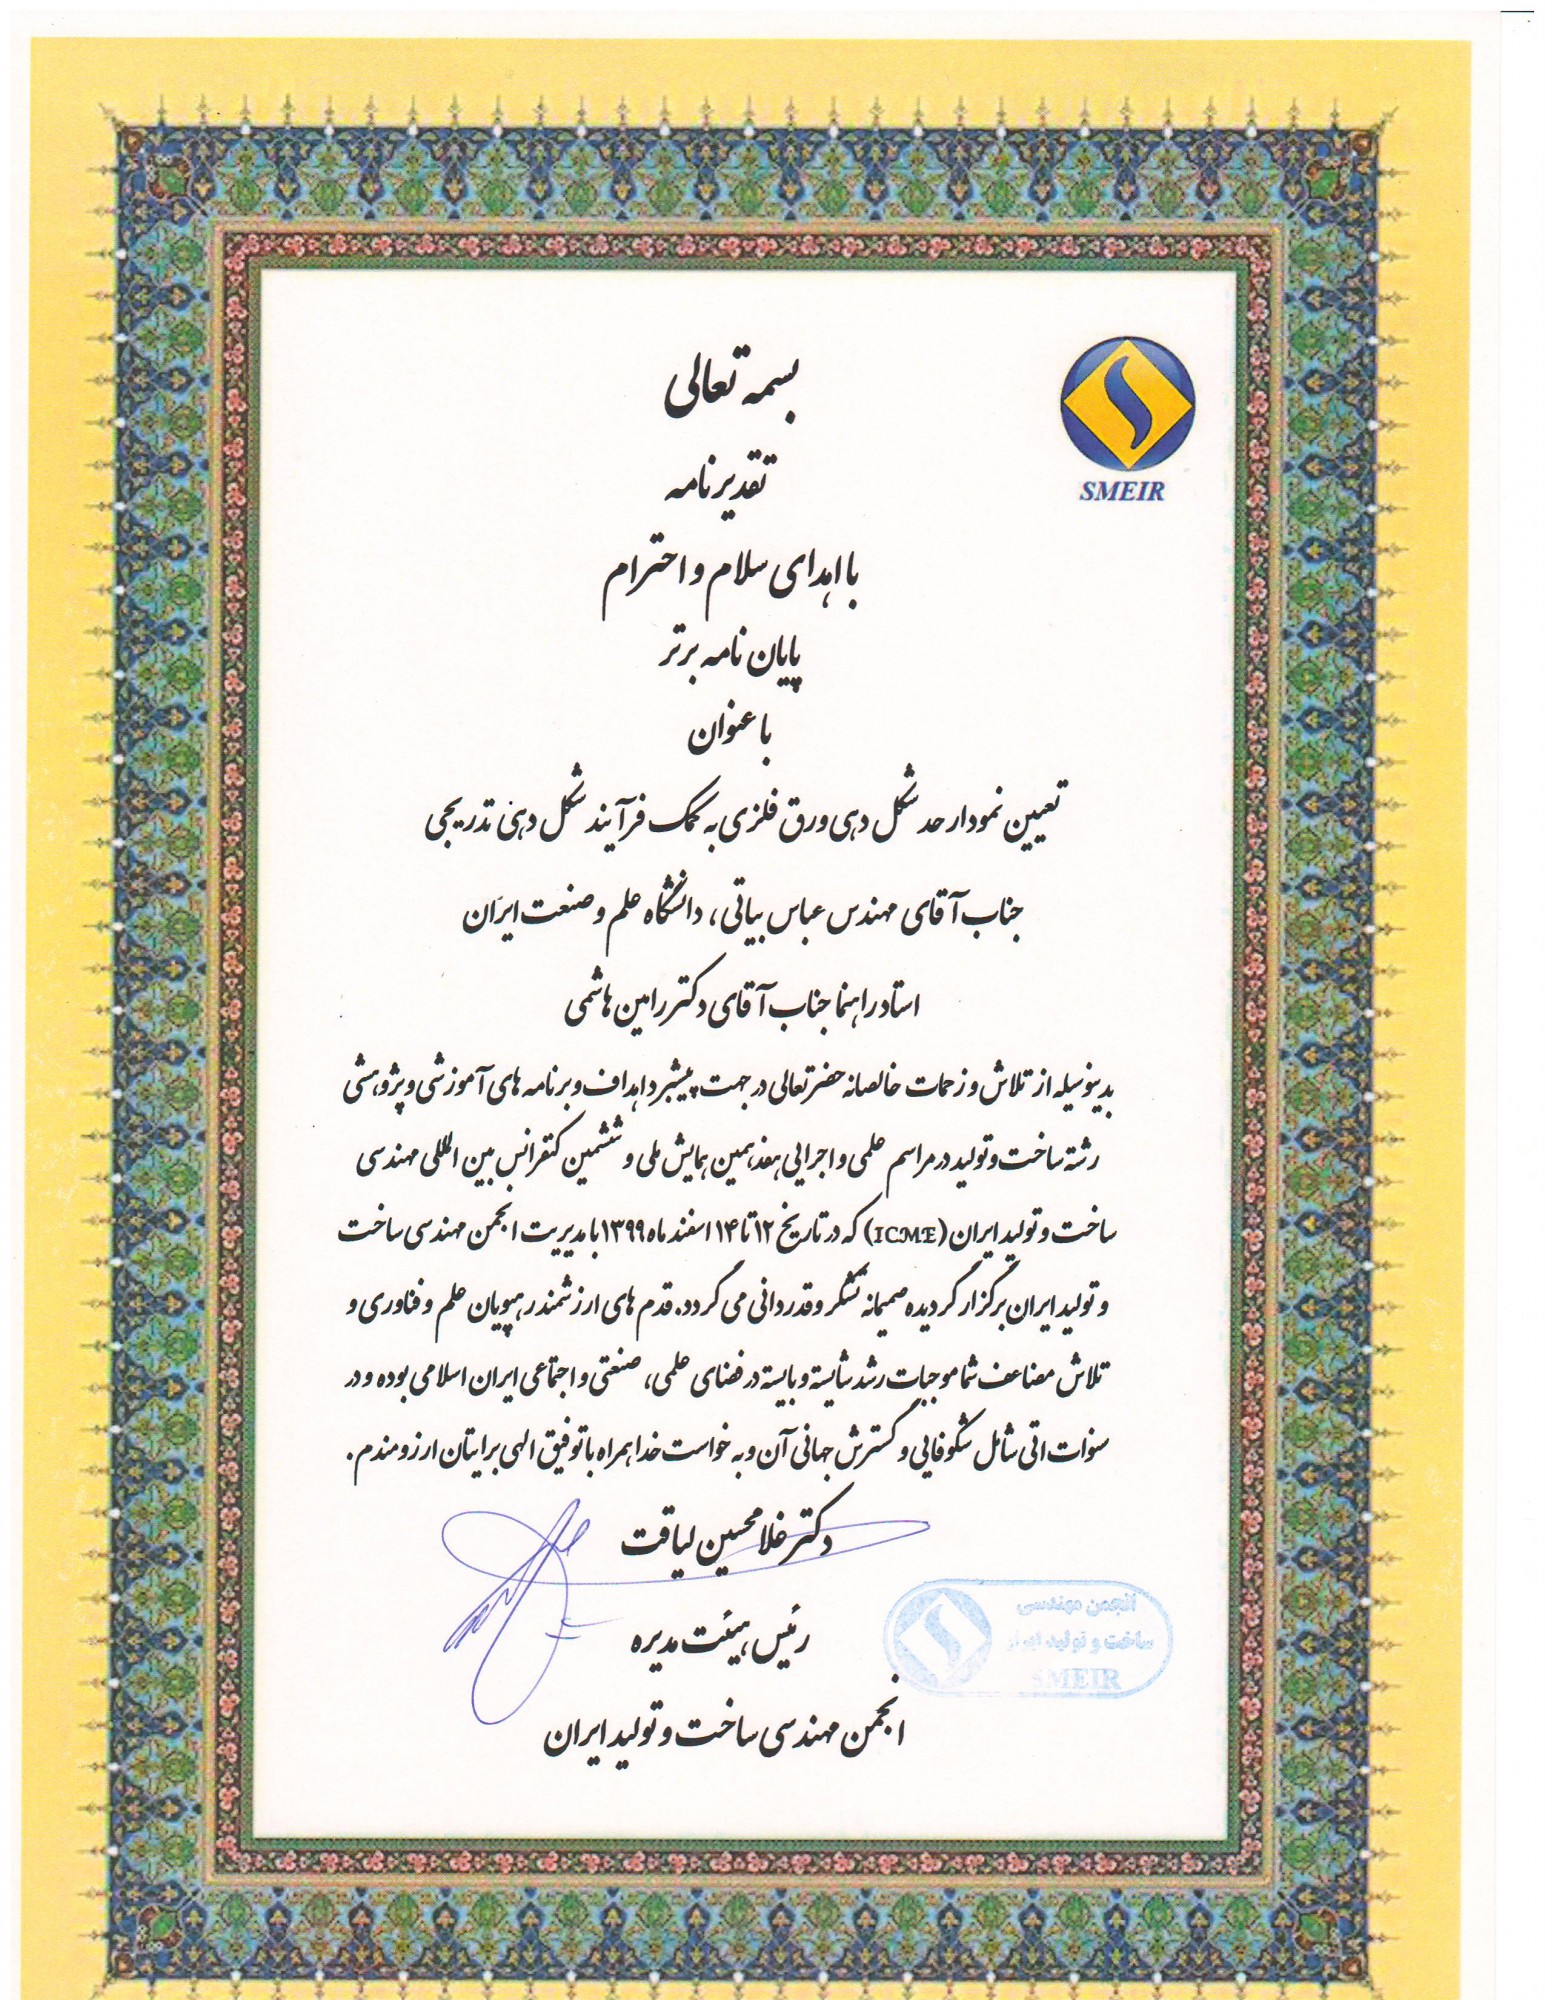 بسمه تعالی
SMEIR
تقدیرنامه
با اهدای سلام و احترام
پایان نامه برتر
با عنوان
تعیین نمودار حد شکل دهی ورق فلزی به کمک فرآیند شکل دهی تدریجی
جناب آقای مهندس عباس بیاتی، دانشگاه علم و صنعت ایران
استاد راهنما جناب آقای دکتر رامین هاشمی
بدینوسیله از تلاش و زحمات خالصانه حضرتعالی در جهت پیشبرد اهداف و برنامه های آموزشی و پژوهشی
رشته ساخت و تولید در مراسم علمی و اجرایی هفدهمین همایش ملی و ششمین کنفرانس بین المللی مهندسی
ساخت و تولید ایران (ICME) که در تاریخ ۱۲ تا ۱۴ اسفند ماه ۱۳۹۹ با مدیریت انجمن مهندسی ساخت
و تولید ایران برگزار گردیده صمیمانه تشکر و قدردانی می گردد. قدم های ارزشمند رهپویان علم و فناوری و
تلاش مضاعف شما موجبات رشد شایسته و بایسته در فضای علمی، صنعتی و اجتماعی ایران اسلامی بوده و در
سنوات اتی شامل شکوفایی و گسترش جهانی آن و به خواست خدا همراه با توفیق الهی برایتان ارزومندم.
دکتر غلامحسین لیاقت
رئیس هیئت مدیره
انجمن مهندسی ساخت و تولید ایران
انجمن مهندسی
ساخت و تولید ایران
SMEIR